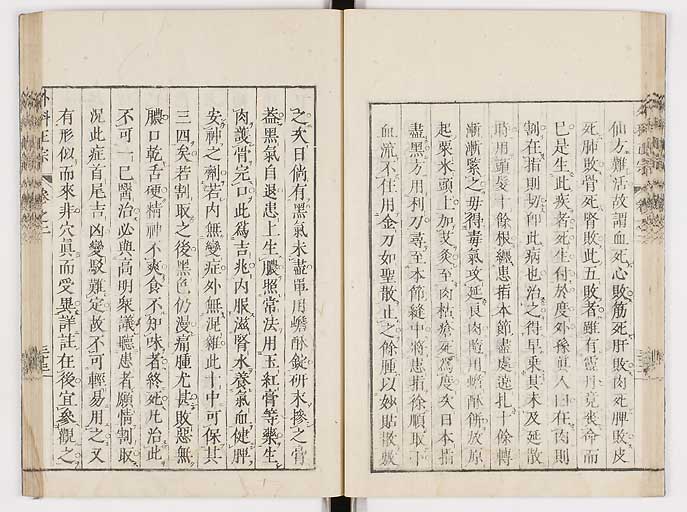 仙方難活故謂血死心敗筋死肝敗肉死脾敗皮
死肺敗骨死腎敗此五敗者雖有靈丹竟喪命而
已是生此疾者死生付於度外孫真人曰在肉則
割在指則切卽此病也治之得早乘其未及延散
時用頭髮十餘根纏患指本節盡處遶扎十餘轉
漸漸緊之毋得毒氣攻延良肉隨用蟾酥餅放原
起粟米頭上加艾灸至肉枯瘡死為度次日本指
盡黑方用利刀尋至本節縫中將患指徐順取下
血流不住用金刀如聖散止之餘腫以妙貼散敷
之次日倘有黑氣未盡單用蟾酥錠研末摻之膏
蓋黑氣自退患上生膿照常法用玉紅膏等藥生
肉護骨完口此為吉兆內服滋腎水養氣血健脾
安神之劑若內無變症外無混雜此十中可保其
三四矣若割取之後黑色仍漫痛腫尤甚敗惡無
膿口乾舌硬精神不爽食不知味者終死凡治此
不可一己醫治必與高明衆議聽患者願情割取
況此症首尾吉凶變駁難定故不可輕易用之又
有形似而來非穴真而受異詳註在後宜參觀之
外科正宗 卷之二